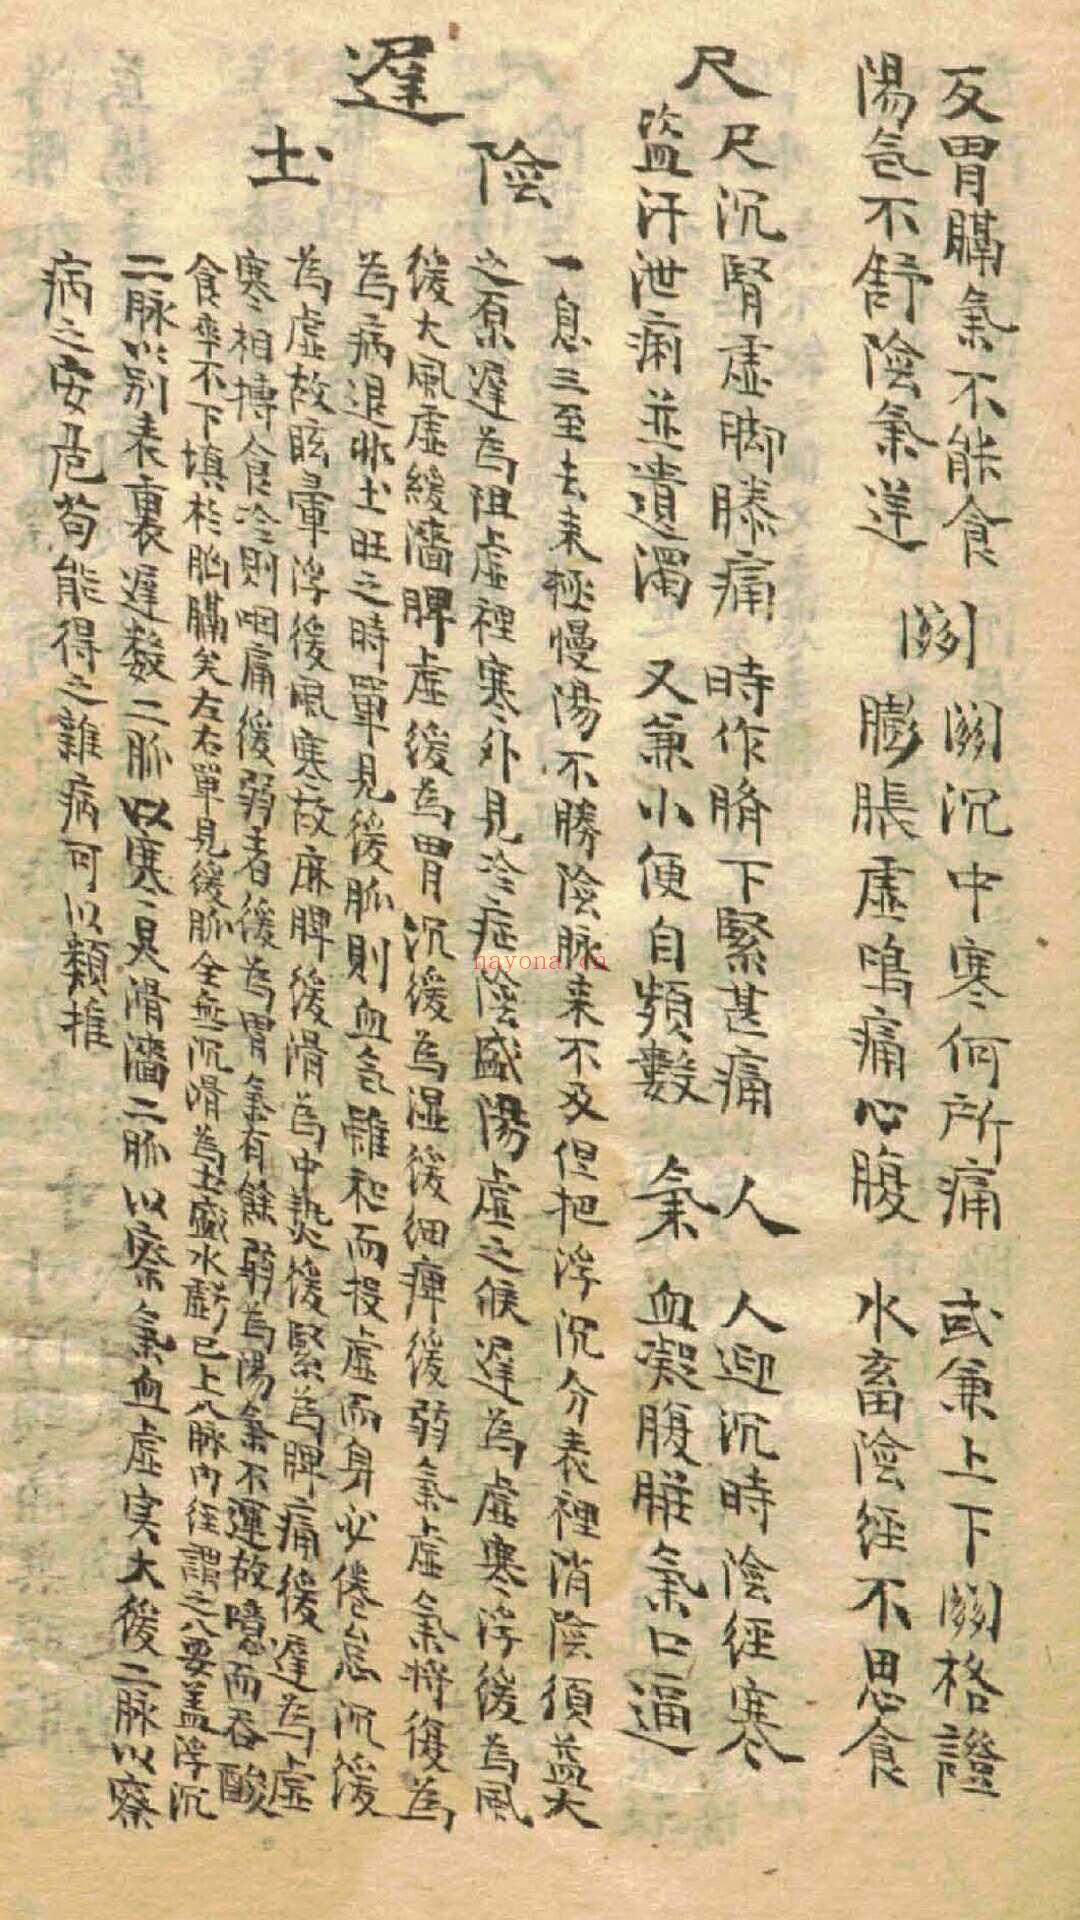 反胃膈氣不能食 關 關沉中寒何所痛 或兼上下關格證
陽氣不舒陰氣逆 膨脹虛鳴痛心腹 水畜陰經不思食
尺 尺沉腎虛脚膝痛 時作臍下緊甚痛 人 人迎沉時陰經寒
盜汗泄痢並遺濁 又兼小便自頻數 氣 血凝腹脹氣口逼
陰
遲
土
一息三至去來極慢陽不勝陰脉來不及但把浮沉分表裡消陰須益火
之原遲為阻虛裡寒外見冷症陰盛陽虛之候遲為虛寒浮緩為風
緩大風虛緩濇脾虛緩為胃沉緩為湿緩細痺緩弱氣虛氣將復為
為病退非土旺之時單見緩脈則血氣雖和而投虛而身必倦怠沉緩
為虛故眩暈浮緩風寒故麻脾緩滑為中熱緩緊為脾痛緩遲為虛
寒相搏食冷則咽痛緩弱者緩為胃氣有餘弱為陽氣不運故噫而吞酸
食卒不下填於胸膈矣左右單見緩脈全無沉滑為土盛水虧已上八脉內経謂之八要盖浮沉
二脉以別表裏遲数二脈以寒之見滑濇二脈以察氣血虛実大緩二脉以察
病之安危苟能得之雜病可以類推
nayona.cn